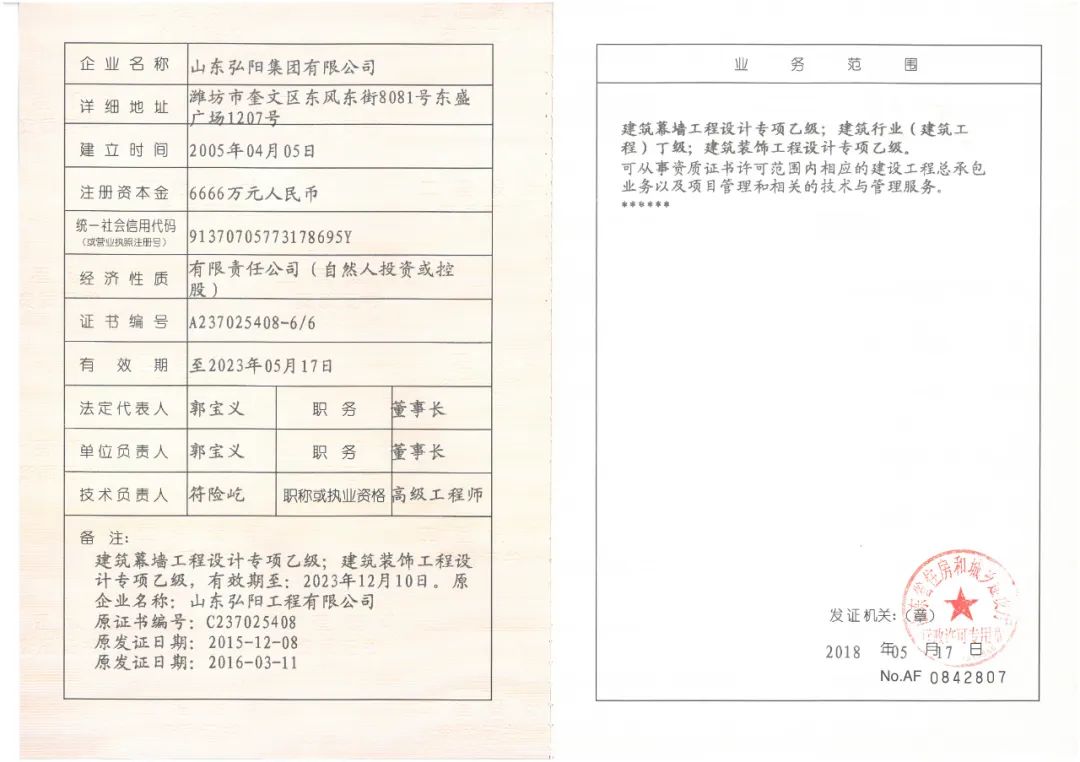 企业名称 山东弘阳集团有限公司
详细地址 潍坊市奎文区东风东街8081号东盛
广场1207号
建立时间 2005年04月05日
注册资本金 6666万元人民币
统一社会信用代码
(或营业执照注册号) 91370705773178695Y
经济性质 有限责任公司(自然人投资或控
股)
证书编号 A237025408-6/6
有效期 至2023年05月17日
法定代表人 郭宝义 职务 董事长
单位负责人 郭宝义 职务 董事长
技术负责人 符险屹 职称或执业资格 高级工程师
备注:
建筑幕墙工程设计专项乙级;建筑装饰工程设
计专项乙级,有效期至:2023年12月10日。原
企业名称:山东弘阳工程有限公司
原证书编号:C237025408
原发证日期:2015-12-08
原发证日期:2016-03-11
业务范围
建筑幕墙工程设计专项乙级;建筑行业(建筑工
程)丁级;建筑装饰工程设计专项乙级。
可从事资质证书许可范围内相应的建设工程总承包
业务以及项目管理和相关的技术与管理服务。
******
山东省住房和城乡建设厅
行政许可专用章
发证机关:(章)
2018年05月17日
No.AF 0842807